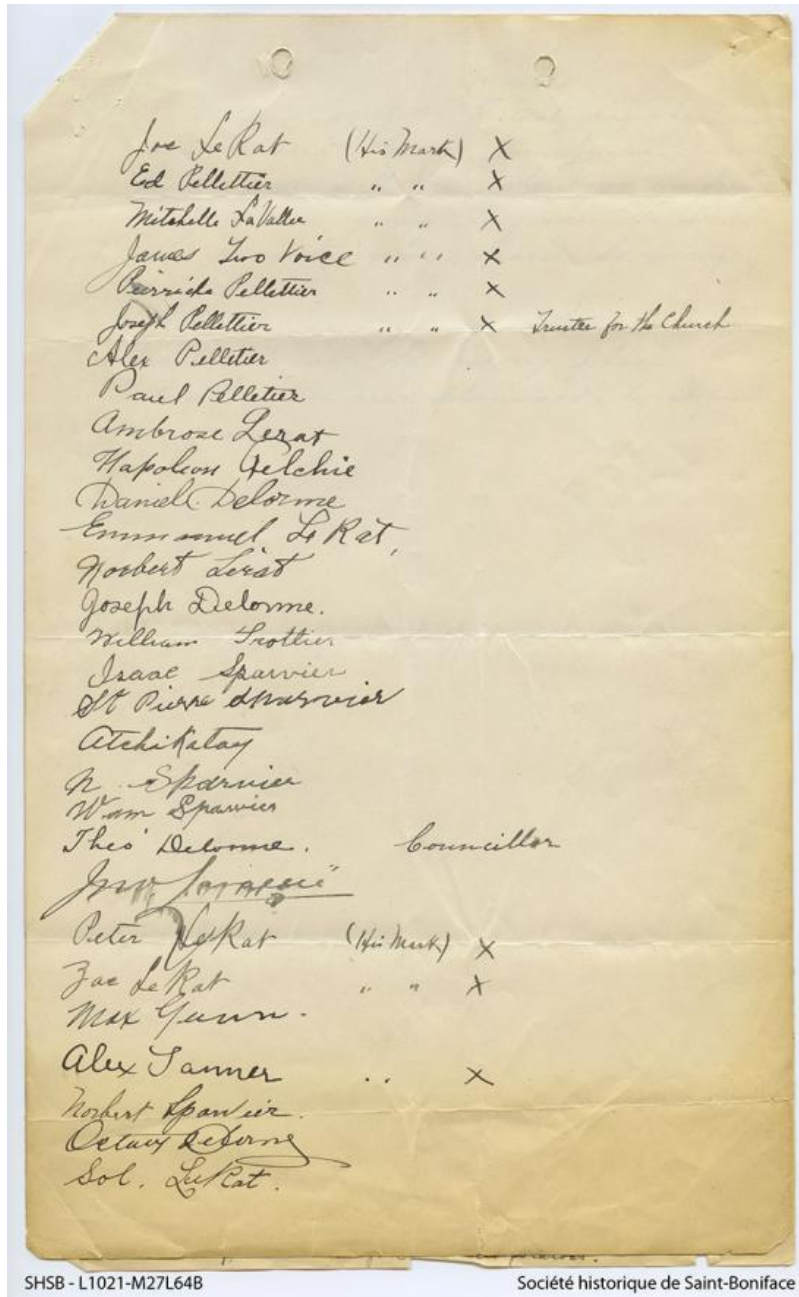 Joe LeRat (His Mark) X
Ed Pellettier " " X
Mitchelle LaVallee " " X
James Two Voice " " X
Pierriche Pellettier " " X
Joseph Pellettier " " X Trustee for the Church
Alex Pelletier
Paul Pelletier
Ambrose Lerat
Napoleon
Daniel Delorme
Emmanuel Le Rat,
Norbert Lerat
Joseph Delorme.
William Trottier
Isaac Sparvier
St Pierre Sparvier
Atchikatay
N. Sparvier
Wam Sparvier
Théo Delorme. Councillor
Peter LeRat (His Mark) X
Zac LeRat " " X
Max Gunn.
Alex Tanner " X
Norbert Sparvier.
Octave Delorme
Sol. LeRat.
SHSB - L1021-M27L64B
Société historique de Saint-Boniface